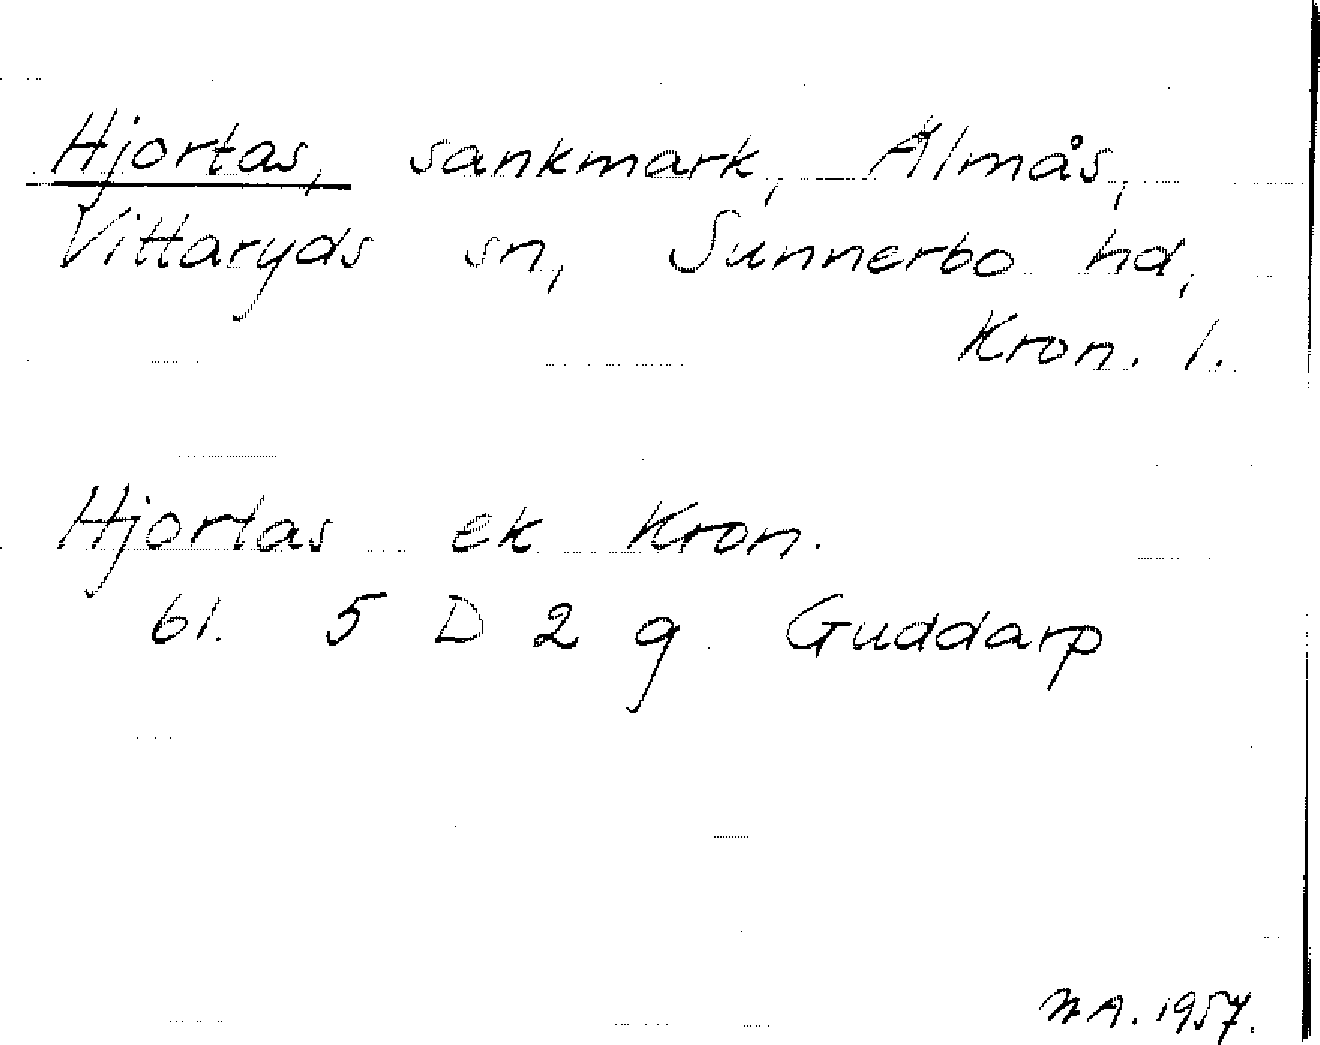 Hjortas, sankmark, Älmås,
Vittaryds sn, Sunnerbo hd,
Kron. l.
Hjortas ek Kron.
bl. 5 D 2 g Guddarp
1957.